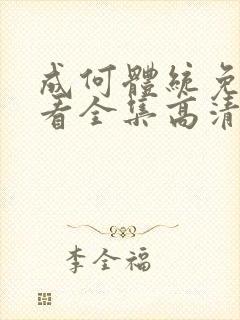 成何體統免
看全集高清
李全福